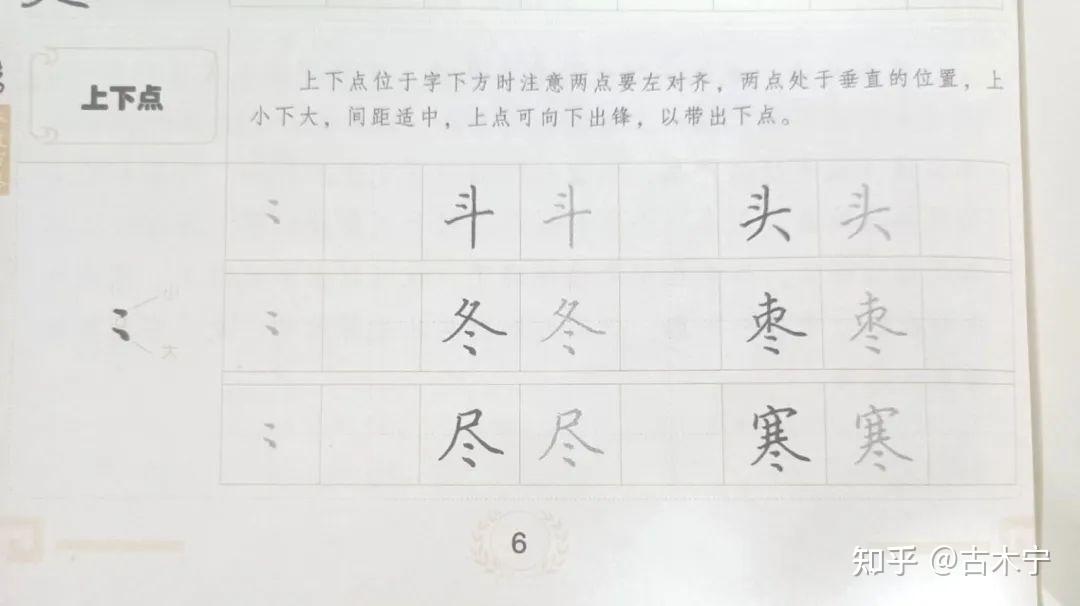 上下点
上下点位于字下方时注意两点要左对齐，两点处于垂直的位置，上
小下大，间距适中，上点可向下出锋，以带出下点。
斗 斗 头 头
小
大
冬 冬 枣 枣
尽 尽 寒 寒
6
知乎 @古木宁